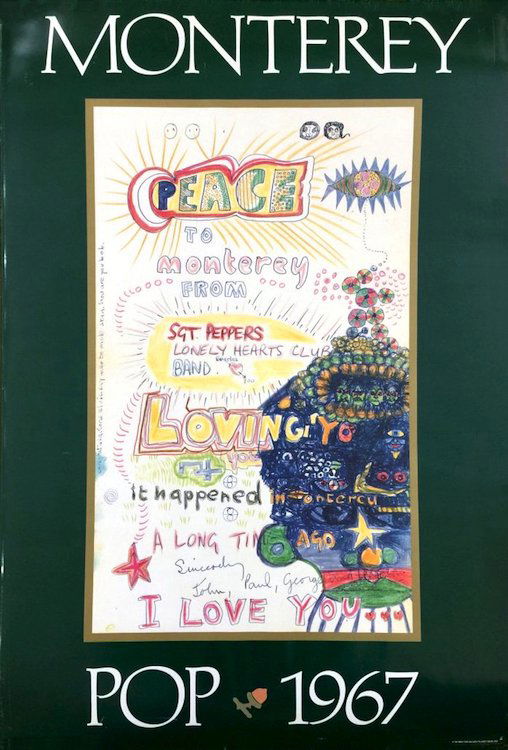 MONTEREY
PEACE
TO
monterey
FROM
SGT PEPPERS
LONELY HEARTS CLUB
BAND
LOVING YO
you
it happened in monterey
A LONG TIME AGO
Sincerely
John, Paul, George
I LOVE YOU...
POP 1967